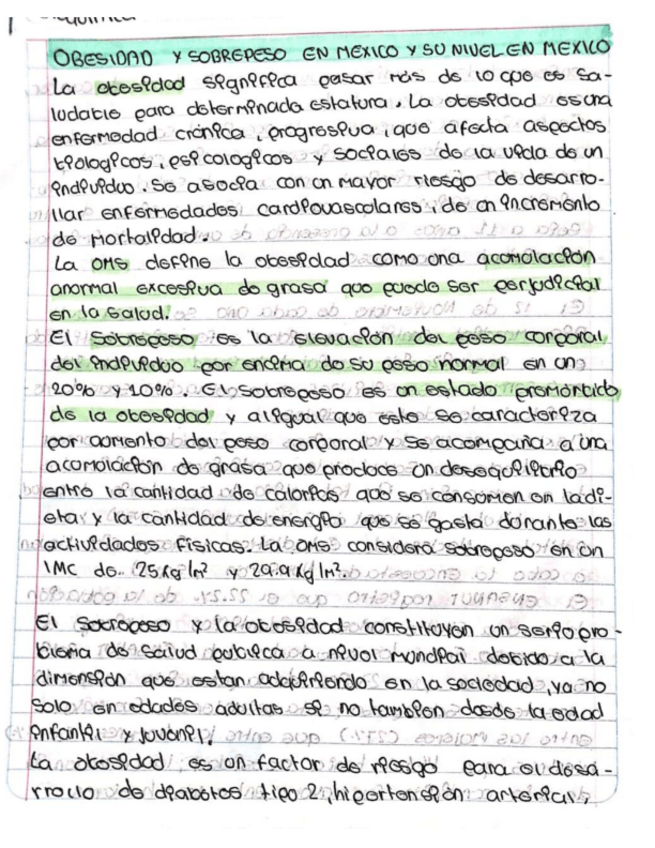 OBESIDAD Y SOBREPESO EN MEXICO Y SU NIVEL EN MEXICO
La obesidad significa pesar más de lo que es sa-
ludable para determinada estatura. La obesidad es una
enfermedad crónica, progresiva, que afecta aspectos
biologicos, psicologicos y sociales de la vida de un
individuo. Se asocia con un mayor riesgo de desarro-
llar enfermedades cardiovasculares, de un incremento
de mortalidad.
La OMS define la obesidad como una acumulación
anormal excesiva de grasa que puede ser perjudicial
en la salud.
El sobrepeso es la elevación del peso corporal
del individuo por encima de su peso normal en un
20% y 10%. El sobrepeso es un estado premorbido
de la obesidad y al igual que este se caracteriza
por aumento del peso corporal y se acompaña a una
acumulación de grasa que produce un desequilibrio
entre la cantidad de calorias que se consumen en la di-
eta y la cantidad de energia que se gasta durante las
actividades físicas. La OMS considera sobrepeso en un
IMC de 25Kg/m² y 29.9 Kg/m².
El sobrepeso y la obesidad constituyen un serio pro-
blema de salud publica a nivel mundial debido a la
dimensión que estan adquiriendo en la sociedad, ya no
solo en edades adultas si no tambien desde la edad
infantil y juvenil.
La obesidad es un factor de riesgo para el desa-
rrollo de diabetes tipo 2, hipertensión arterial,